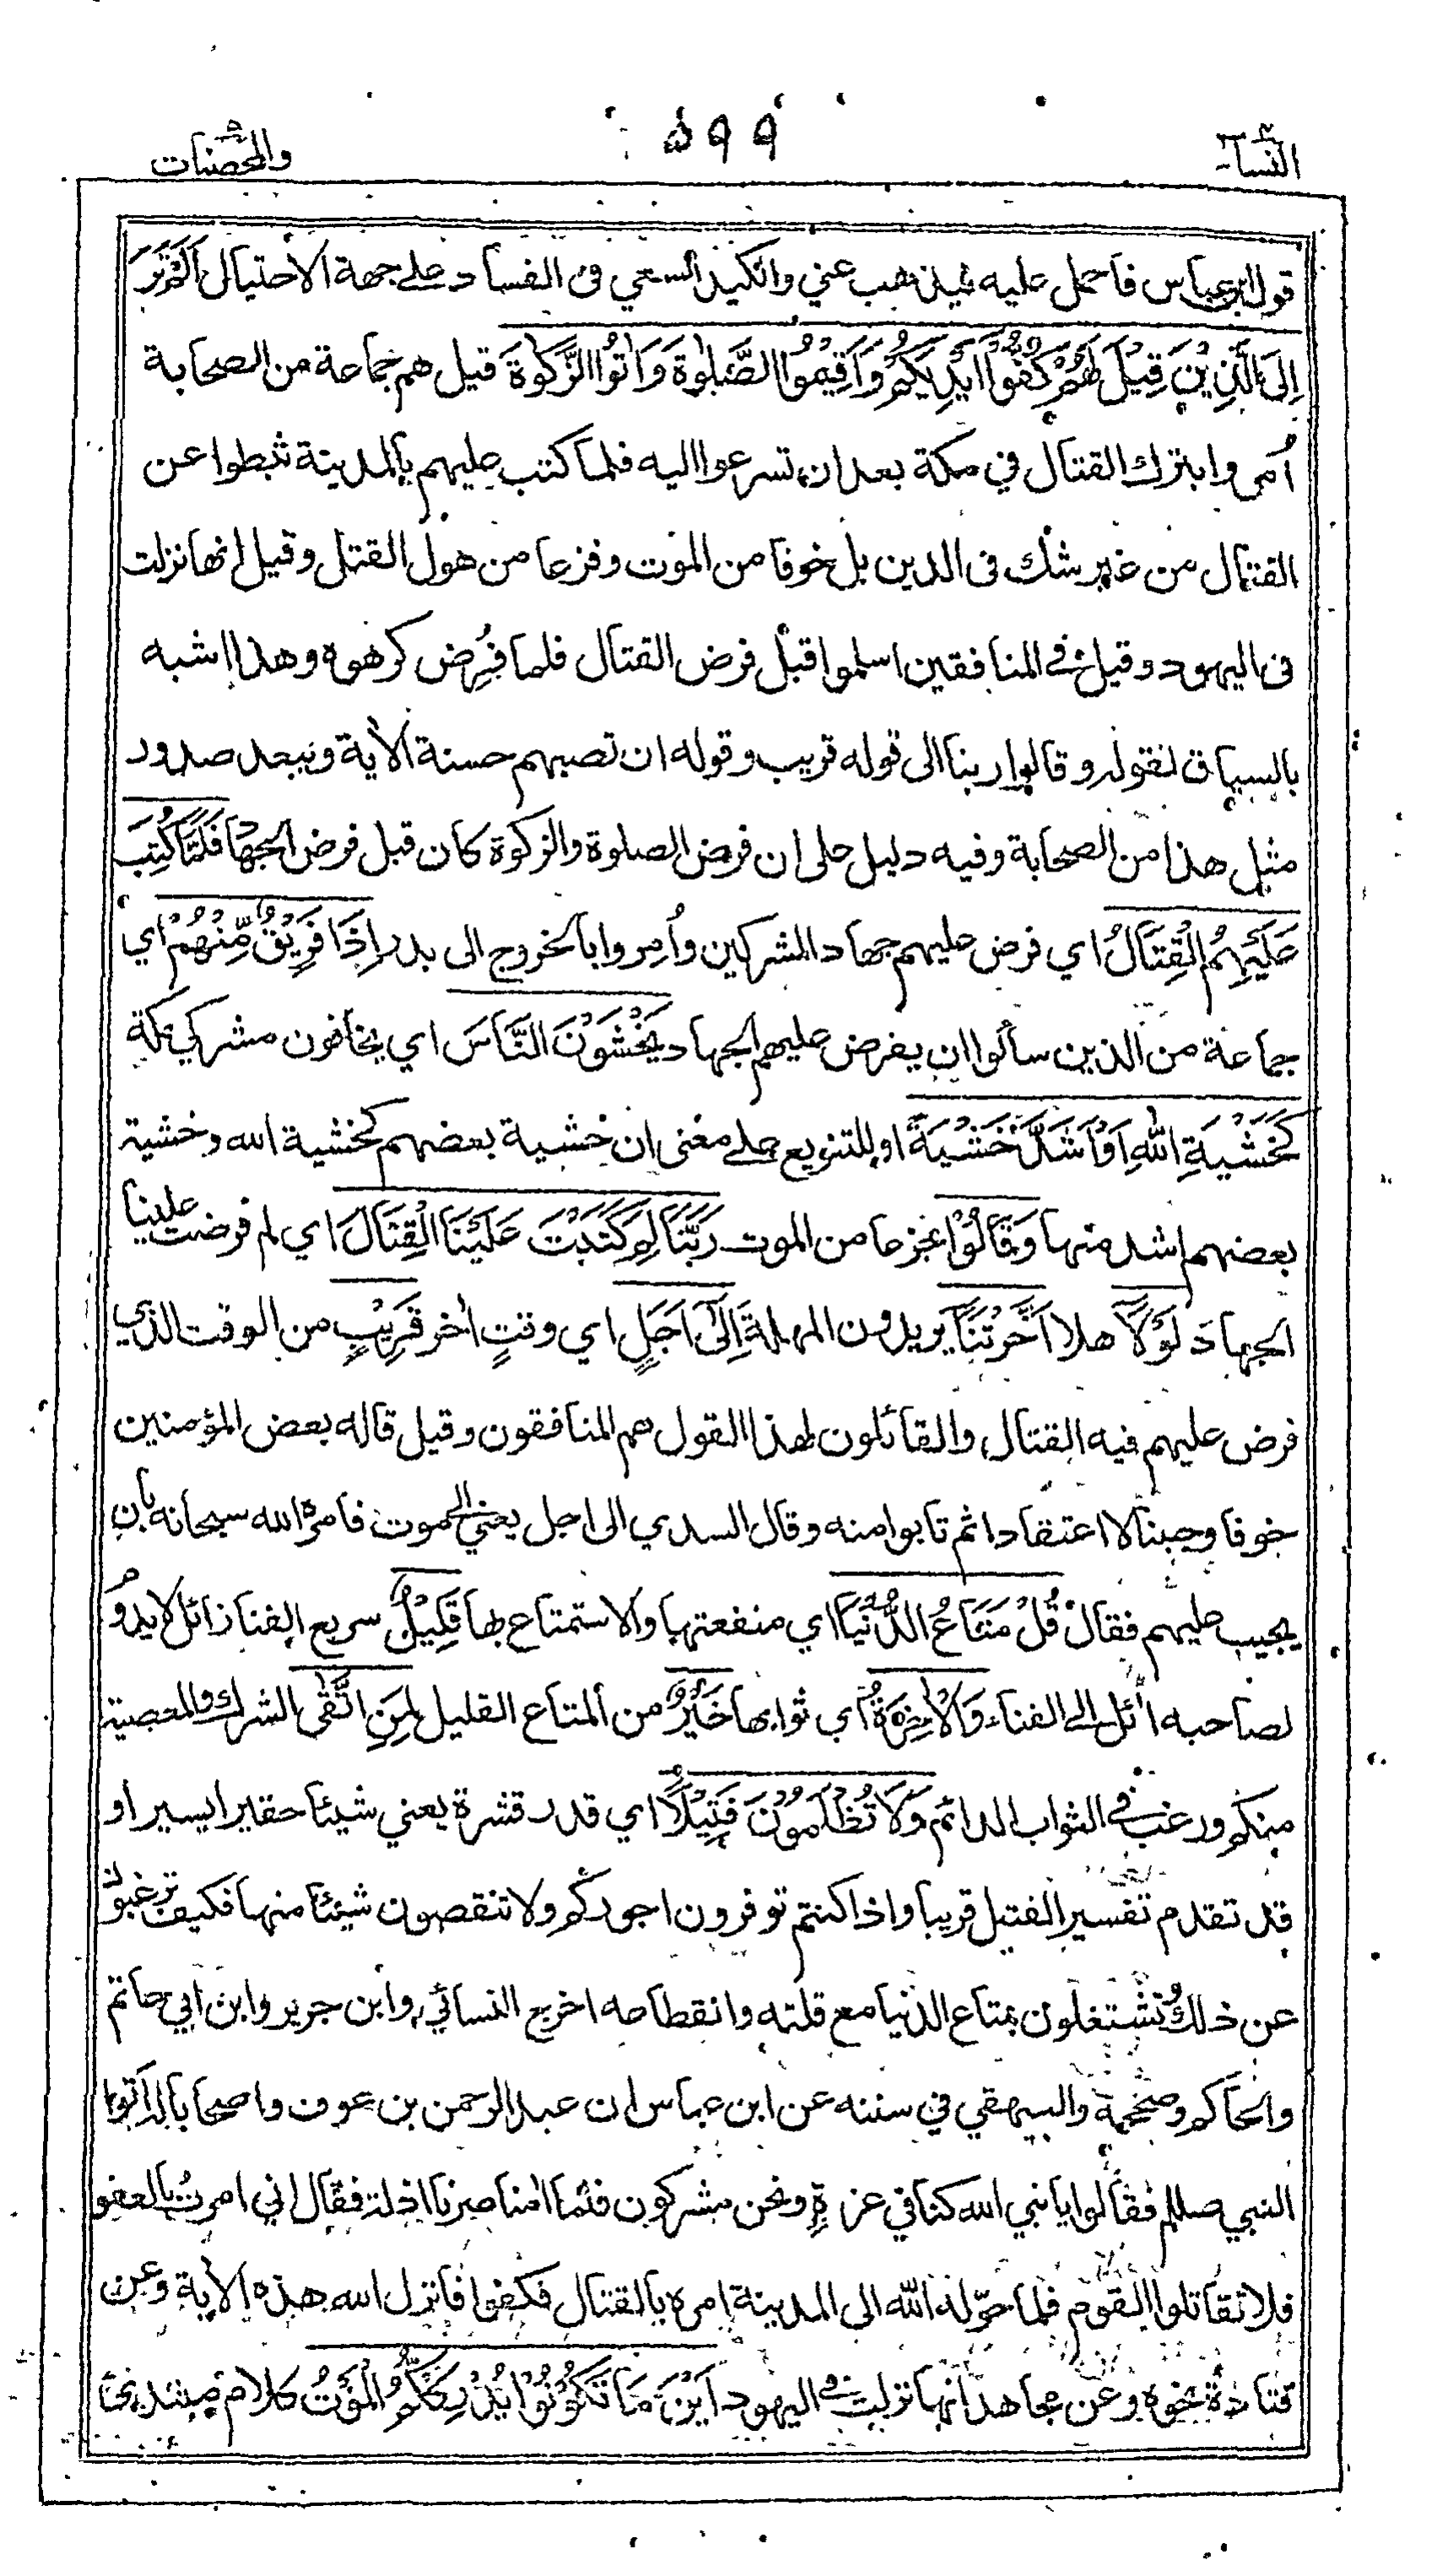 النساء ٤
٥٩٩
والمحصنات ٥
قول ابن عباس فاحمل عليه فيذهب عني والكيد السعي في الفساد على جهة الاحتيال اَلَمْ تَرَ
اِلَى الَّذِيْنَ قِيْلَ لَهُمْ كُفُّوْا اَيْدِيَكُمْ وَاَقِيْمُوا الصَّلٰوةَ وَاٰتُوا الزَّكٰوةَ قيل هم جماعة من الصحابة
اُمروا بترك القتال في مكة بعد ان تسرعوا اليه فلما كتب عليهم بالمدينة ثبطوا عن
القتال من غير شك فى الدين بل خوفا من الموت وفزعا من هول القتل وقيل انها نزلت
فى اليهود وقيل في المنافقين اسلموا قبل فرض القتال فلما فُرِض كرهوه وهذا اشبه
بالسياق لقوله وقالوا ربنا الى قوله قريب وقوله ان تصبهم حسنة الاٰية ويبعد صدور
مثل هذا من الصحابة وفيه دليل على ان فرض الصلوة والزكوة كان قبل فرض الجهاد فَلَمَّا كُتِبَ
عَلَيْهِمُ الْقِتَالُ اي فرض عليهم جهاد المشركين واُمِروا بالخروج الى بدر اِذَا فَرِيْقٌ مِّنْهُمْ اي
جماعة من الذين سألوا ان يفرض عليهم الجهاد يَخْشَوْنَ النَّاسَ اي يخافون مشركي مكة
كَخَشْيَةِ اللّٰهِ اَوْ اَشَدَّ خَشْيَةً او للتنويع على معنى ان خشية بعضهم كخشية الله وخشية
بعضهم اشد منها وَقَالُوْا جزعا من الموت رَبَّنَا لِمَ كَتَبْتَ عَلَيْنَا الْقِتَالَ اي لم فرضت علينا
الجهاد لَوْلَا هلا اَخَّرْتَنَا يريدون المهلة اِلٰى اَجَلٍ اي وقتٍ اٰخر قَرِيْبٍ من الوقت الذي
فرض عليهم فيه القتال والقائلون لهذا القول هم المنافقون وقيل قاله بعض المؤمنين
خوفا وجبنا لا اعتقادا ثم تابوا منه وقال السدي الى اجل يعني الى موت فامره الله سبحانه بان
يجيب عليهم فقال قُلْ مَتَاعُ الدُّنْيَا اي منفعتها والاستمتاع بها قَلِيْلٌ سريع الفنا زائل لا يدوم
لصاحبه اٰئل الى الفناء وَالْاٰخِرَةُ اي ثوابها خَيْرٌ من المتاع القليل لِمَنِ اتَّقٰى الشرك والمعصية
منكم ورغب في الثواب الدائم وَلَا تُظْلَمُوْنَ فَتِيْلًا اي قدر قشرة يعني شيئا حقيرا يسيرا و
قد تقدم تفسير الفتيل قريبا واذا كنتم توفرون اجوركم ولا تنقصون شيئا منها فكيف ترغبون
عن ذلك وتشتغلون بمتاع الدنيا مع قلته وانقطاعه اخرج النسائي وابن جرير وابن ابي حاتم
والحاكم وصححه والبيهقي في سننه عن ابن عباس ان عبد الرحمن بن عوف واصحابا له اتوا
النبي صللم فقالوا يا نبي الله كنا في عزةٍ ونحن مشركون فلما اٰمنا صرنا اذلة فقال اني امرتُ بالعفو
فلا تقاتلوا القوم فلما حوّله الله الى المدينة امره بالقتال فكفوا فانزل الله هذه الاٰية وعن
قتادة نحوه وعن مجاهد انها نزلت في اليهود اَيْنَ مَا تَكُوْنُوْا يُدْرِكْكُّمُ الْمَوْتُ كلام مبتدئ